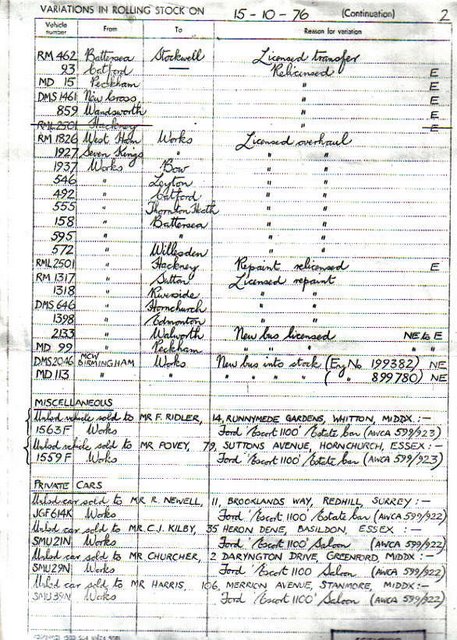 VARIATIONS IN ROLLING STOCK ON 15-10-76 (Continuation) 2
Vehicle number From To Reason for variation
RM 462 Battersea Stockwell Licensed transfer
93 Catford — Relicensed E
MD 15 Peckham " E
DMS 1461 New Cross " E
859 Wandsworth " E
RML 2501 Hackney " E
RM 1826 West Ham Works Licensed overhaul
1927 Seven Kings " "
1937 Works Bow " "
546 " Leyton " "
492 " Catford " "
555 " Thornton Heath " "
158 " Battersea " "
595 " " " "
572 " Willesden " "
RML 2501 " Hackney Repaint relicensed E
RM 1317 " Sutton Licensed repaint
1318 " Riverside " "
DMS 646 " Hornchurch " "
1398 " Edmonton " "
2133 " Walworth New bus licensed NE to E
MD 99 " Peckham " " " " " "
DMS 2046 MCW BIRMINGHAM Works New bus into stock (Eng No 199382) NE
MD 113 " " " " " " ( " " 899780) NE
MISCELLANEOUS
Unlsd vehicle sold to MR F. RIDLER, 14, RUNNYMEDE GARDENS, WHITTON, MIDDX :-
1563F Works Ford 'Escort 1100' Estate Car (AWCA 599/923)
Unlsd vehicle sold to MR POVEY, 79, SUTTONS AVENUE, HORNCHURCH, ESSEX :-
1559F Works Ford 'Escort 1100' Estate Car (AWCA 599/923)
PRIVATE CARS
Unlsd car sold to MR R. NEWELL, 11, BROOKLANDS WAY, REDHILL, SURREY :-
JGF 614K Works Ford 'Escort 1100' Estate Car (AWCA 599/922)
Unlsd car sold to MR C.J. KILBY, 35 HERON DENE, BASILDON, ESSEX :-
SMU 21N Works Ford 'Escort 1100' Saloon (AWCA 599/922)
Unlsd car sold to MR CHURCHER, 2 DARYNGTON DRIVE, GREENFORD MIDDX :-
SMU 29N Works Ford 'Escort 1100' Saloon (AWCA 599/922)
Unlsd car sold to MR HARRIS, 106, MERRION AVENUE, STANMORE, MIDDX :-
SMU 39N Works Ford 'Escort 1100' Saloon (AWCA 599/922)